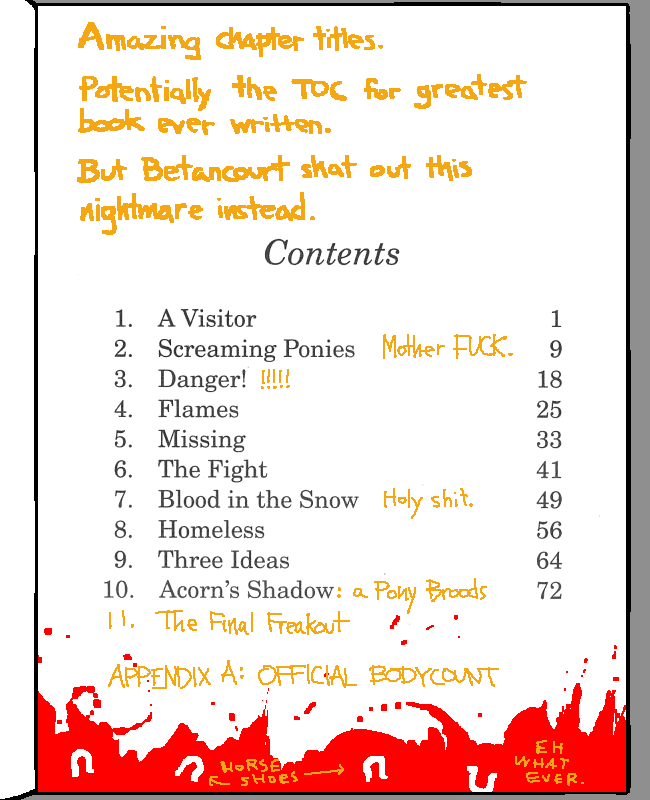 Amazing chapter titles.
Potentially the TOC for greatest
book ever written.
But Betancourt shat out this
nightmare instead.
Contents
1. A Visitor 1
2. Screaming Ponies Mother FUCK. 9
3. Danger! !!!!! 18
4. Flames 25
5. Missing 33
6. The Fight 41
7. Blood in the Snow Holy shit. 49
8. Homeless 56
9. Three Ideas 64
10. Acorn's Shadow: a Pony Broods 72
11. The Final Freakout
APPENDIX A: OFFICIAL BODYCOUNT
HORSE
SHOES
EH
WHAT
EVER.